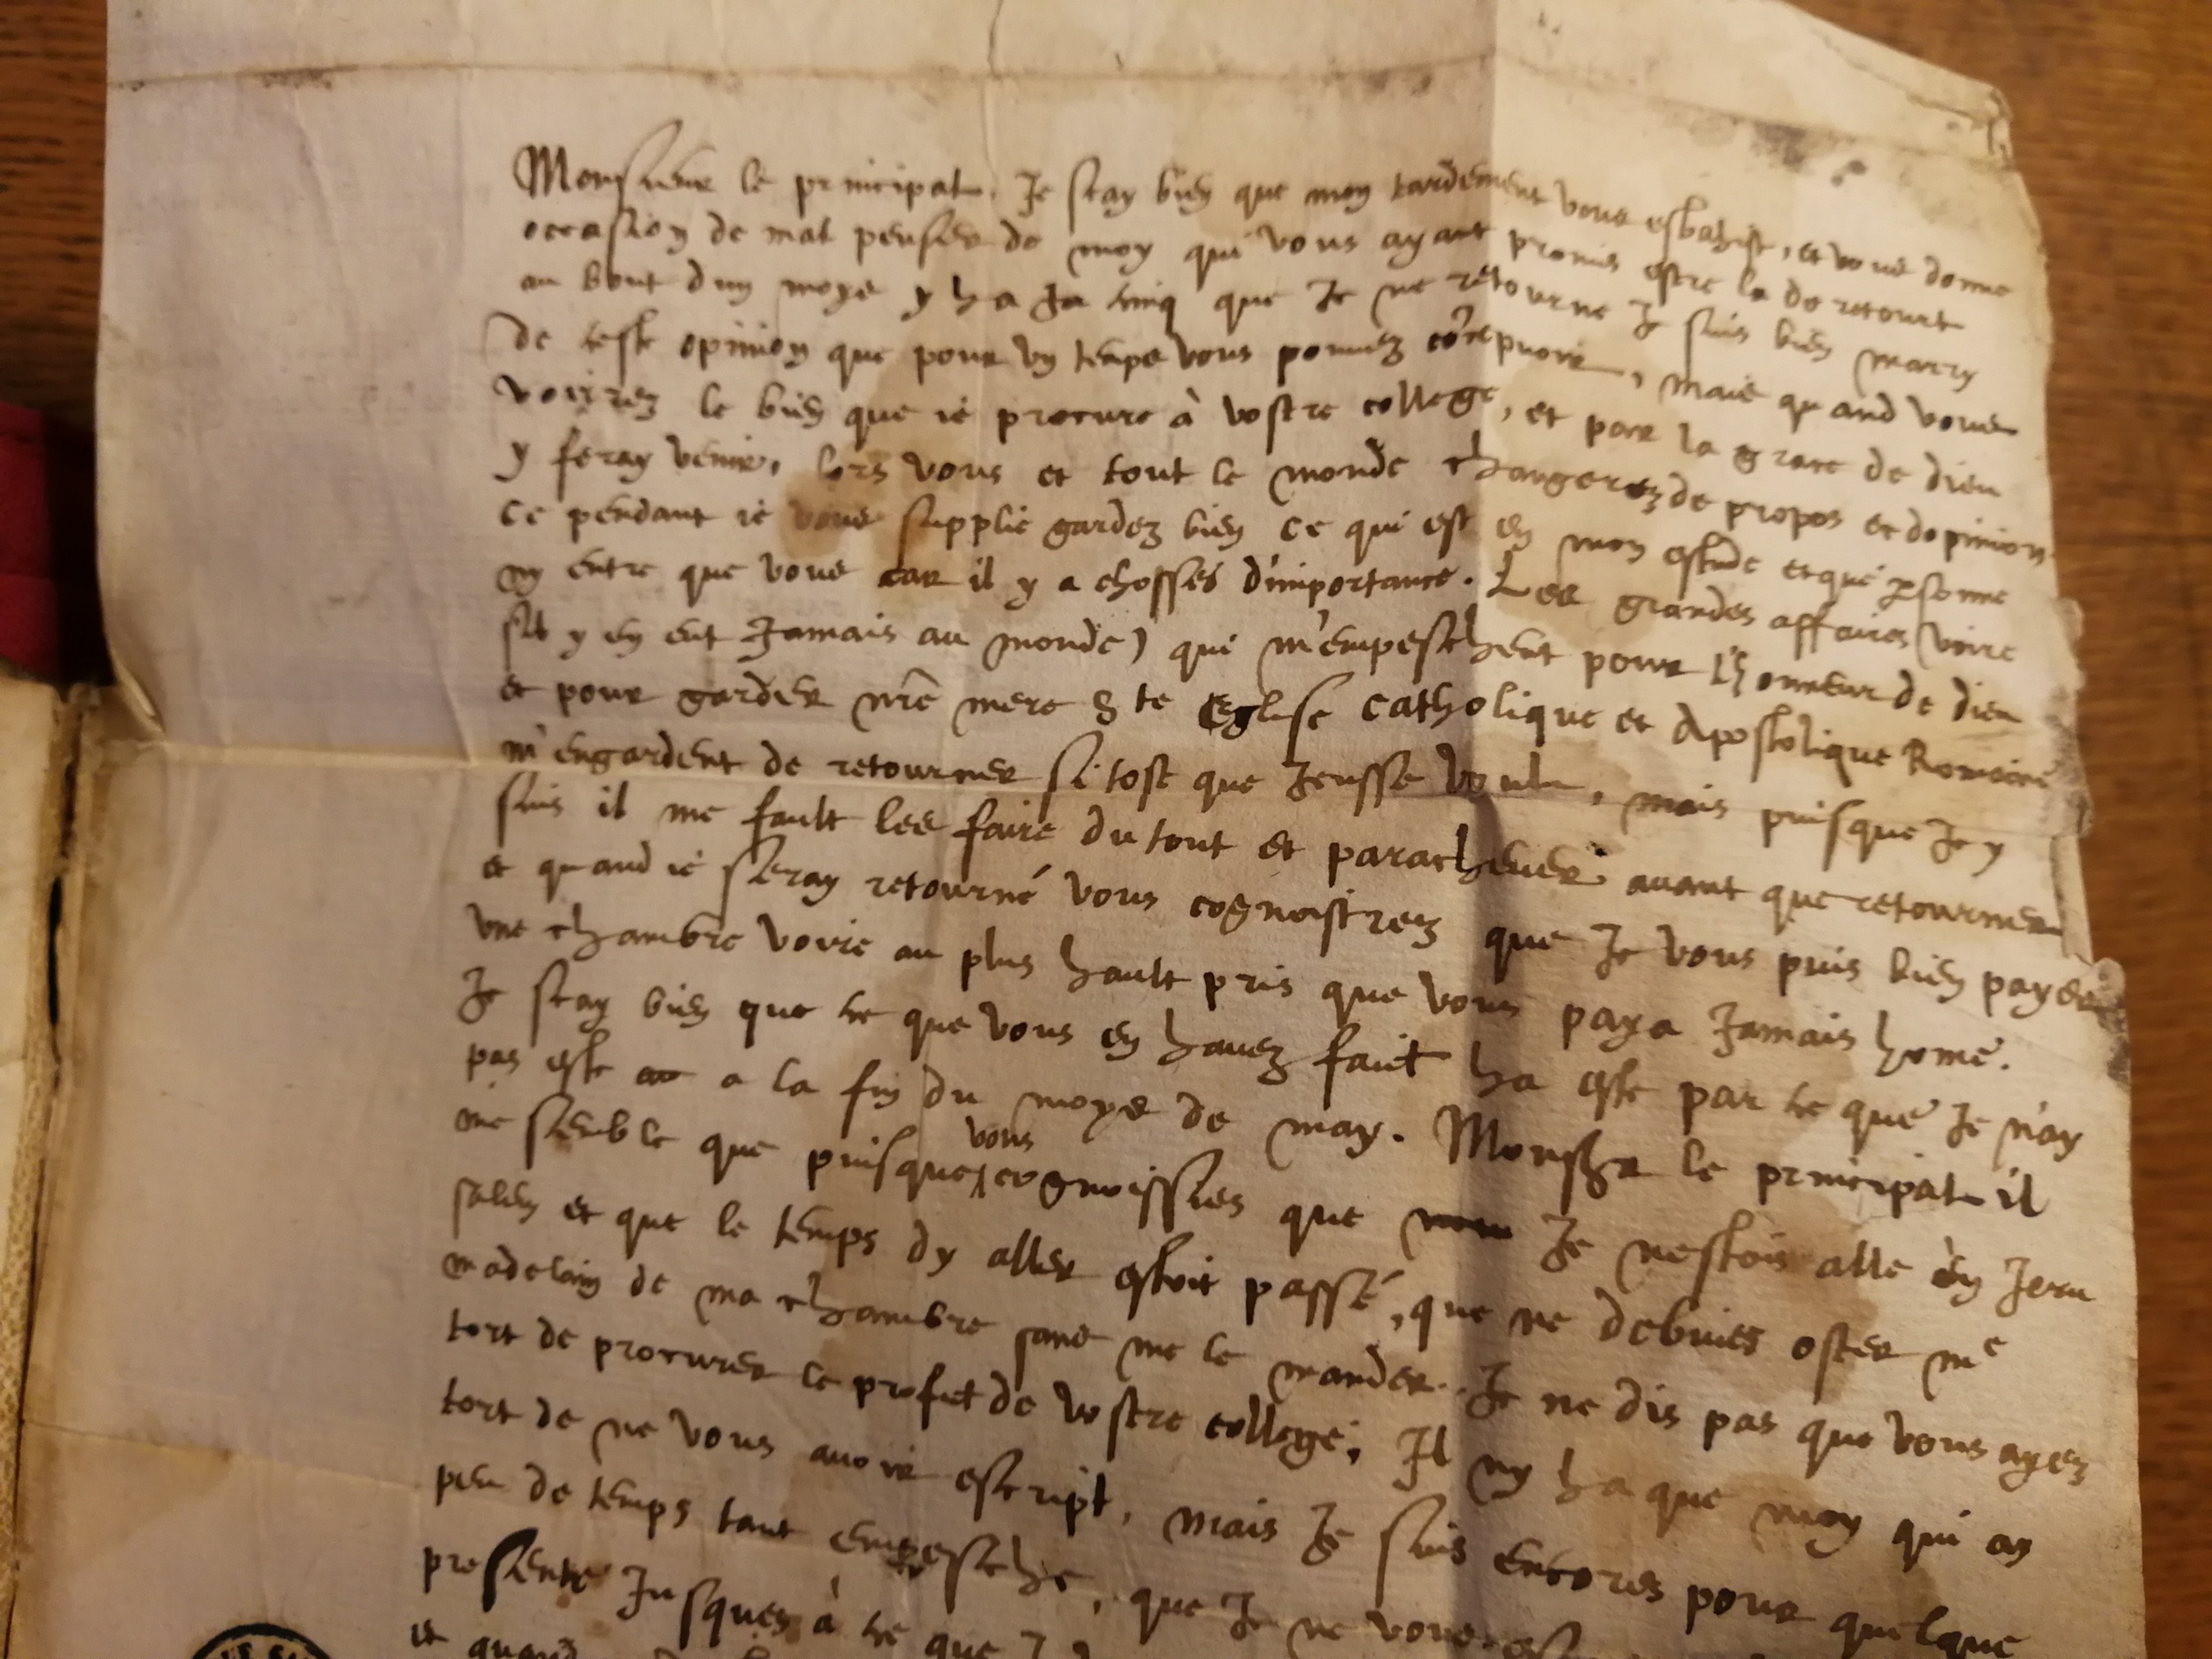 Monsieur le principal. Je scay bien que mon tardement vous esbahist, et vous donne
occasion de mal penser de moy qui vous ayant promis estre la de retourt
au bout dun moys y ha ja cinq que Je ne retourne Je suis bien marry
de ceste opinion que pour un temps vous pouuez , mais quand vous
voirrez le bien que ie procure à vostre college, et par la grace de dieu
y feray venir, lors vous et tout le monde changerez de propos et dopinion
ce pendant ie vous supplie gardez bien ce qui est en mon estude et que psonne
ny entre que vous car il y a chosses d'importance. Les grandes affaires (voire
sil y en eut Jamais au monde) qui m'empeschent pour l'honneur de dieu
et pour garder nre mere S te Eglise catholique et Apostolique Romaine
m'engardent de retourner si tost que Jeusse voulu, mais puisque Jey
suis il me fault les faire du tout et paracheuer auant que retourner
et quand ie seray retourné vous cognoistrez que Je vous puis bien payer
une chambre voire au plus hault pris que vous paya Jamais home.
Je scay bien que ce que vous en hauez faict ha este par ce que Je n'ay
pas este a la fin du moys de may. Monsr le principal il
me semble que puisque vous cognoissies que Je nestois alle en Jeru
salem et que le temps dy aller estoit passé, que ne debuies oster me
madelain de ma chambre sans me le mander. Je ne dis pas que vous ayez
tort de procurer le profict de vostre college; Il ny ha que moy qui ay
tort de ne vous auoir escript, mais Je suis encores pour quelque
peu de temps tant empesche, que Je ne vous
presente Jusques à ce que
et quand